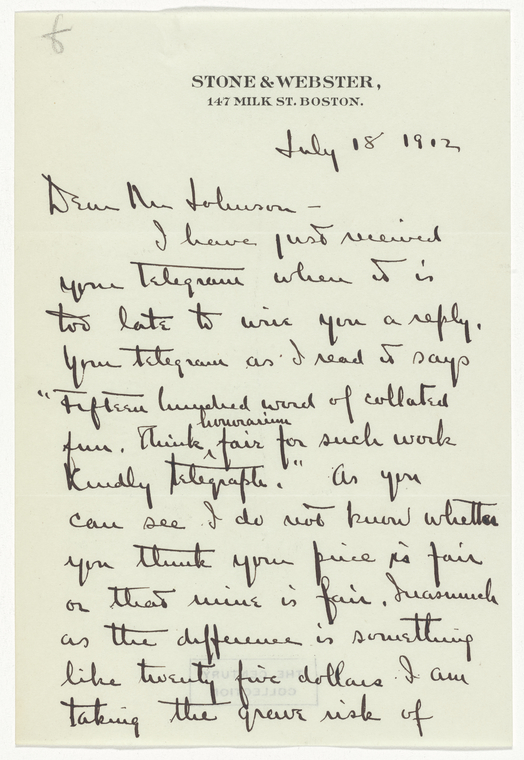 8
STONE & WEBSTER,
147 MILK ST. BOSTON.
July 18 1912
Dear Mr Johnson –
I have just received
your telegram when it is
too late to wire you a reply.
Your telegram as I read it says
"Fifteen hundred word of collated
honorarium
fun. Think ^ fair for such work
Kindly telegraph." As you
can see I do not know whether
you think your price is fair
or that mine is fair. Inasmuch
as the difference is something
like twenty five dollars I am
taking the grave risk of
THE CENTURY
COLLECTION